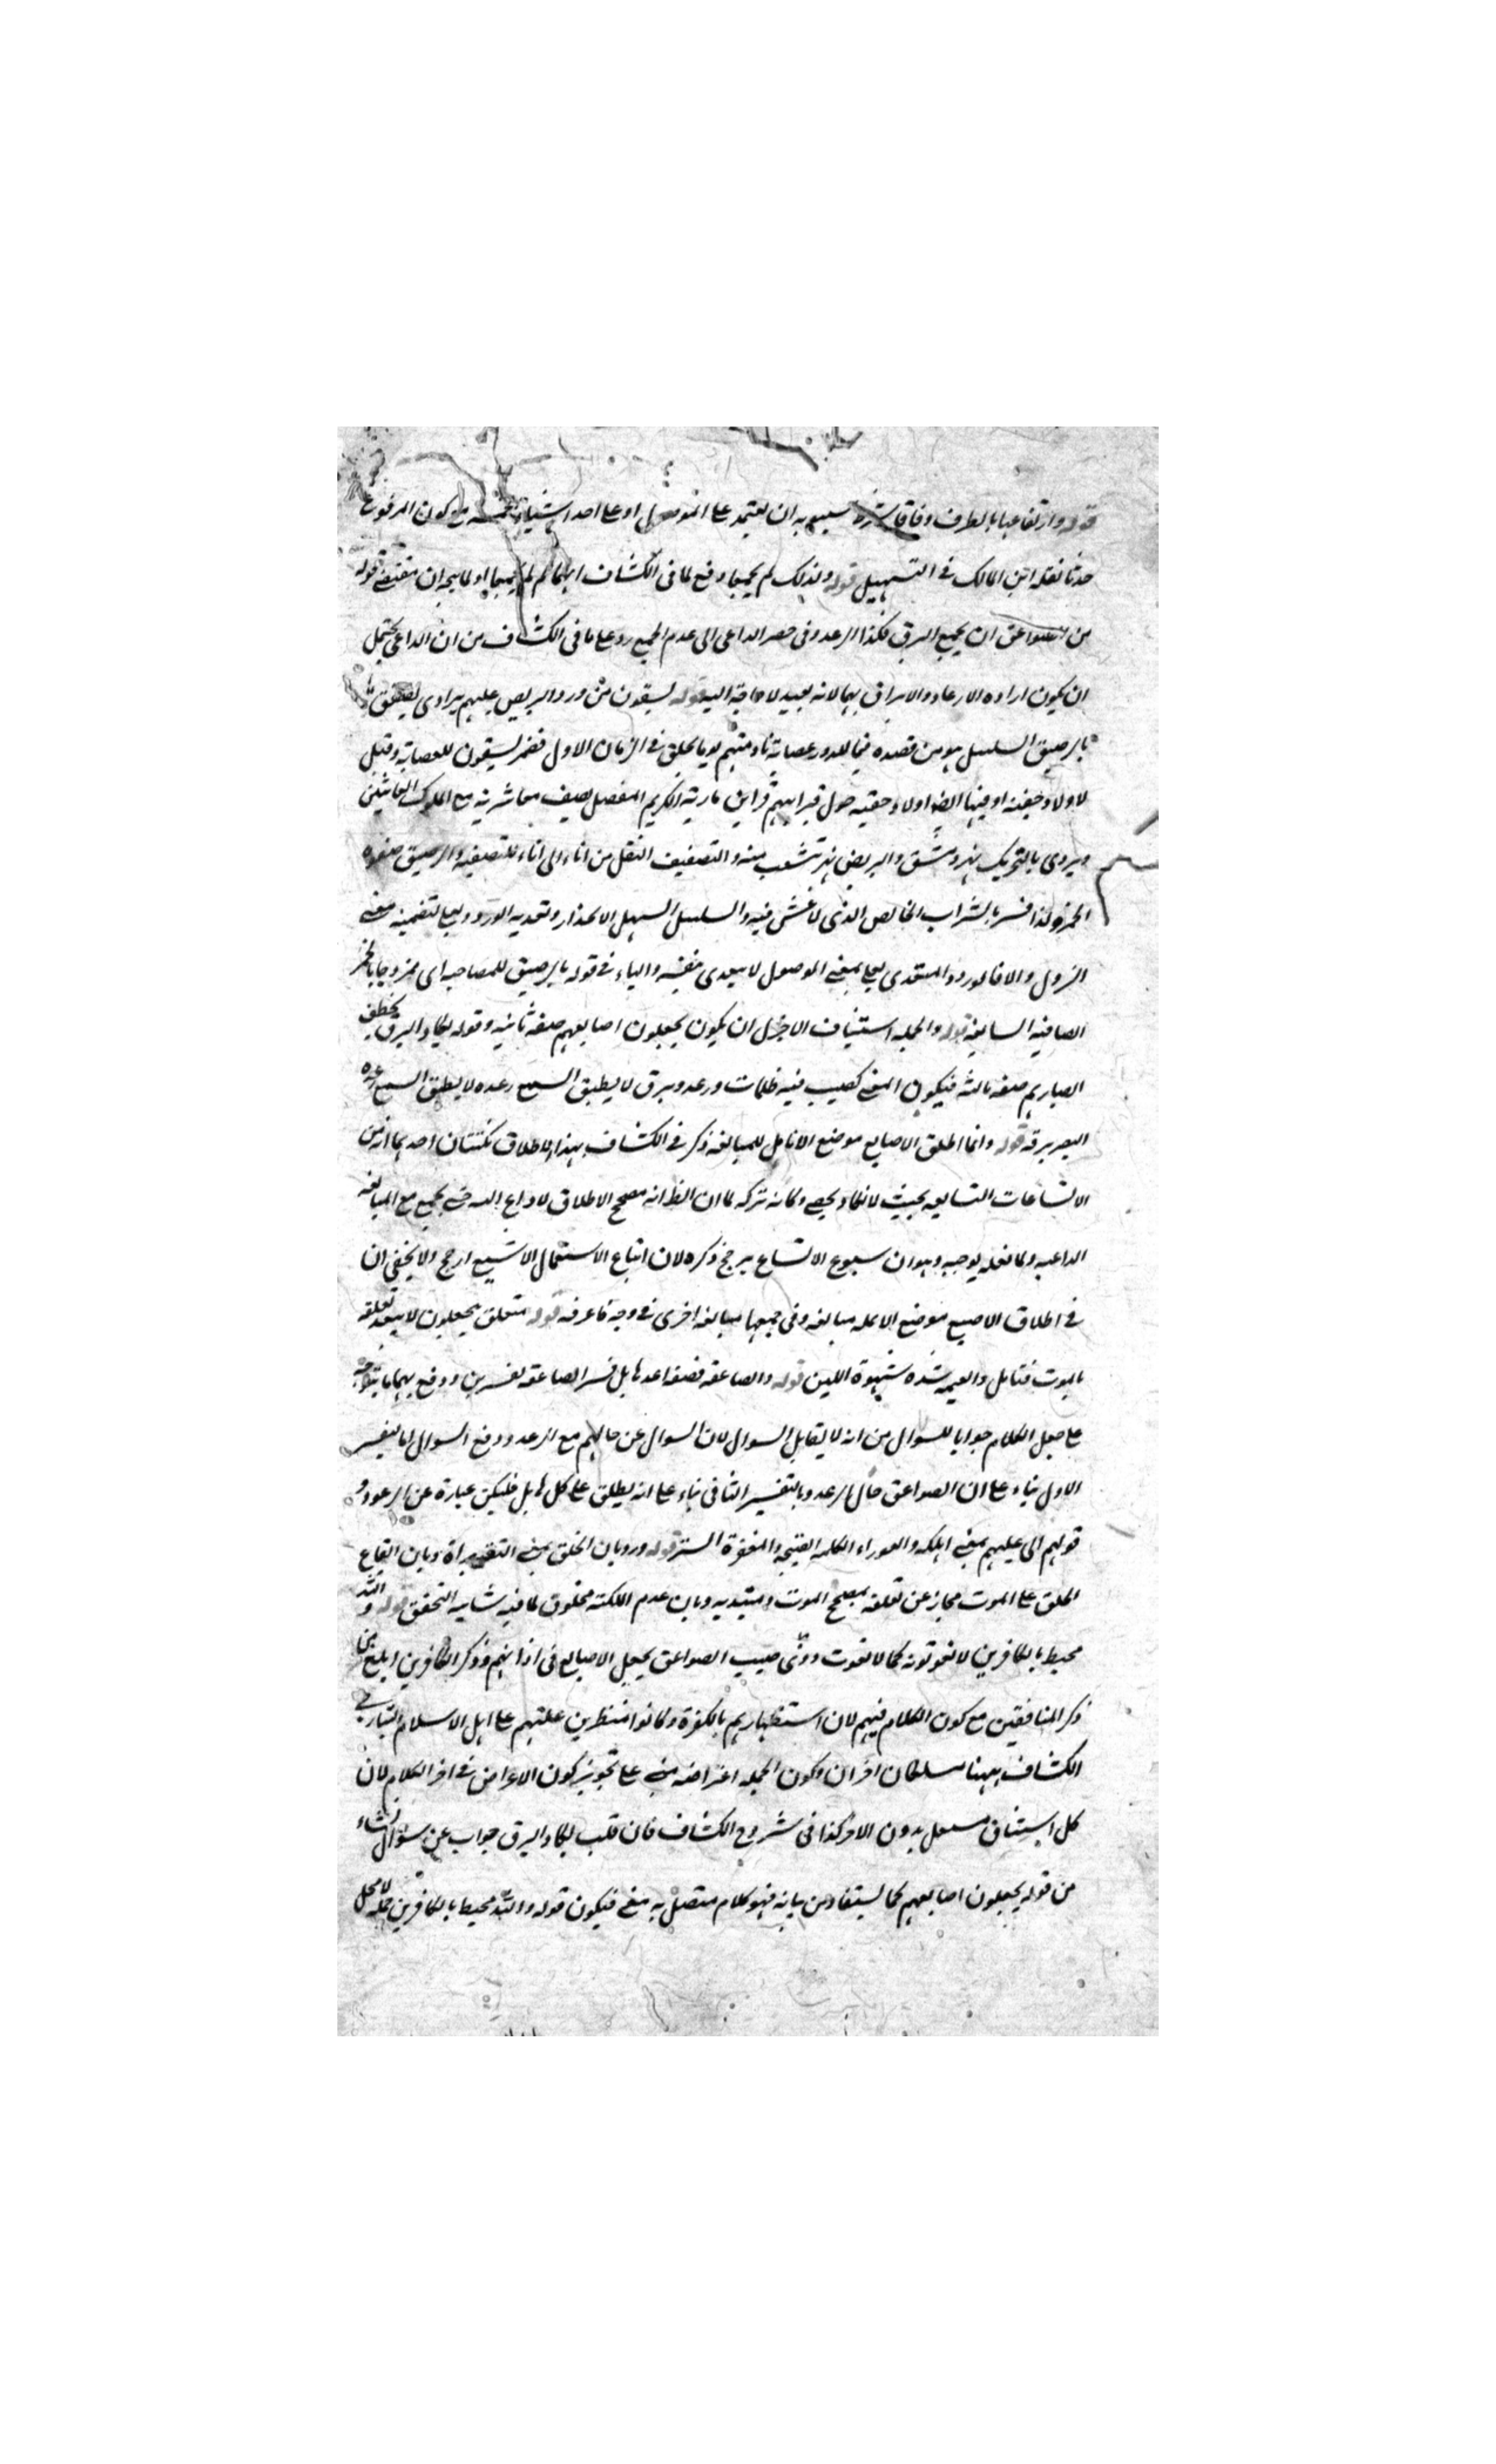 قوله وارتفاعها بالظرف وفاقا شرط سيبويه ان يعتمد على الموصول او على احد اشياء خمسة مع كون المرفوع
حدثا نقله ابن المالك في التسهيل قوله ولذلك لم يجمعا دفع لما في الكشاف انهما لم لم يجمعا او لما يتجه ان مقتضى قوله
من الصواعق ان يجمع البرق فكذا الرعد وفي حصر الداعي الى عدم الجمع رد على ما في الكشاف من ان الداعي يحتمل
ان يكون اراده الارعاد والابراق بهما لانه بعيد لا حاجة اليه قوله يسقون من ورد البريص عليهم بردى يصفق
بالرحيق السلسل هو من قصيده فيها لله در عصابة نادمتهم يوما بجلق في الزمان الاول فضمر يسقون للعصابة وقيل
لاولاد جفنه او فيها ايضا اولاد جفنه حول قبر ابيهم قبر ابن مارية الكريم المفضل يصف معاشرته مع الملوك
ويروى بالتحريك نهر دمشق والبريص نهر تشعب منه والتصفيق النقل من اناء الى اناء للتصفيه والرحيق صفوة
الخمر ولذا فسر بالشراب الخالص الذى لا غش فيه والسلسل السهل الانحدار وتعديه الورود بعلى لتضمينه معنى
النزول والا فالورود المتعدى بعلى بمعنى الوصول لا يتعدى بنفسه والباء في قوله بالرحيق للمصاحبه اى ممزوجا بالخمر
الصافيه السايغه قوله والجمله استيناف الاجزل ان يكون يجعلون اصابعهم صفة ثانيه وقوله يكاد البرق يخطف
ابصارهم صفه ثالثه فيكون المعنى كصيب فيه ظلمات ورعد وبرق لا يطيق السمع رعده لا يطيق السمع رعده
البصر برقه قوله وانما اطلق الاصابع موضع الانامل للمبالغه ذكر في الكشاف بهذا الاطلاق نكتتان احديهما انه من
الاتساعات الشايعه بحيث لا تكاد تحصى وكانه تركه لما ان الظ انه مصحح الاطلاق لا داع اليه حتى يجمع مع المبالغه
الداعيه ولما فعله يوجبه وهو ان شيوع الاتساع يرجح ذكره لان اتباع الاستعمال الاشيع ارجح ولا يخفى ان
في اطلاق الاصبع موضع الانمله مبالغه وفي جمعها مبالغه اخرى في وجه فاعرفه قوله متعلق بيجعلون لا يبعد تعلقه
بالموت فتامل والعيمه شده شهوة اللبن قوله والصاعقه قصفه رعد هايل فسر الصاعقه تفسرين ودفع بهما ما يتوجه
على جعل الكلام جوابا للسوال من انه لا يقابل السوال لان السوال عن حالهم مع الرعد ودفع السوال اما بتفسير
الاول بناء على ان الصواعق حال الرعد وبالتفسير الثاني بناء على انه يطلق على كل هايل فليكن عبارة عن الرعد و
قولهم اتى عليهم بمعنى اهلكه والعوراء الكلمه القبيحه والمغفرة الستر قوله ورد بان الخلق بمعنى التقدير اة وبان ايقاع
الخلق على الموت مجاز عن تعلقه بمصحح الموت وبان عدم الملكته مخلوق لما فيه شايبه التحقق قوله والله
محيط بالكافرين لا يفوتونه كما لا يفوت صيب الصواعق بجعل الاصابع في اذانهم وذكر الكافرين ابلغ من
ذكر المنافقين مع كون الكلام فيهم لان استظهارهم بالكفرة وكانوا منتظرين غلبتهم على اهل الاسلام
الكشاف ههنا مسلكان اخران وكون الجمله اعتراضه مبنى على تجويز كون الاعتراض في اخر الكلام لان
كل استيناف مستقل بدون الاخر كذا في شروح الكشاف فان قلت يكاد البرق جواب عن سؤال نشاء
من قوله يجعلون اصابعهم كما يستفاد من بيانه فهو كلام متصل به معنى فيكون قوله والله محيط بالكافرين جملة لا محل